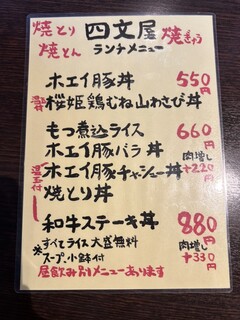 焼とり 四文屋 焼ぎゅう
焼とん ランチメニュー
ホエイ豚丼 550円
桜姫鶏むね山わさび丼
もつ煮込ライス 660円
ホエイ豚バラ丼 肉増し
ホエイ豚チャーシュー丼 +220円
焼とり丼
温玉付
和牛ステーキ丼 880円
※すべてライス大盛無料 肉増し
スープ、小鉢付 +330円
昼飲み別メニューあります